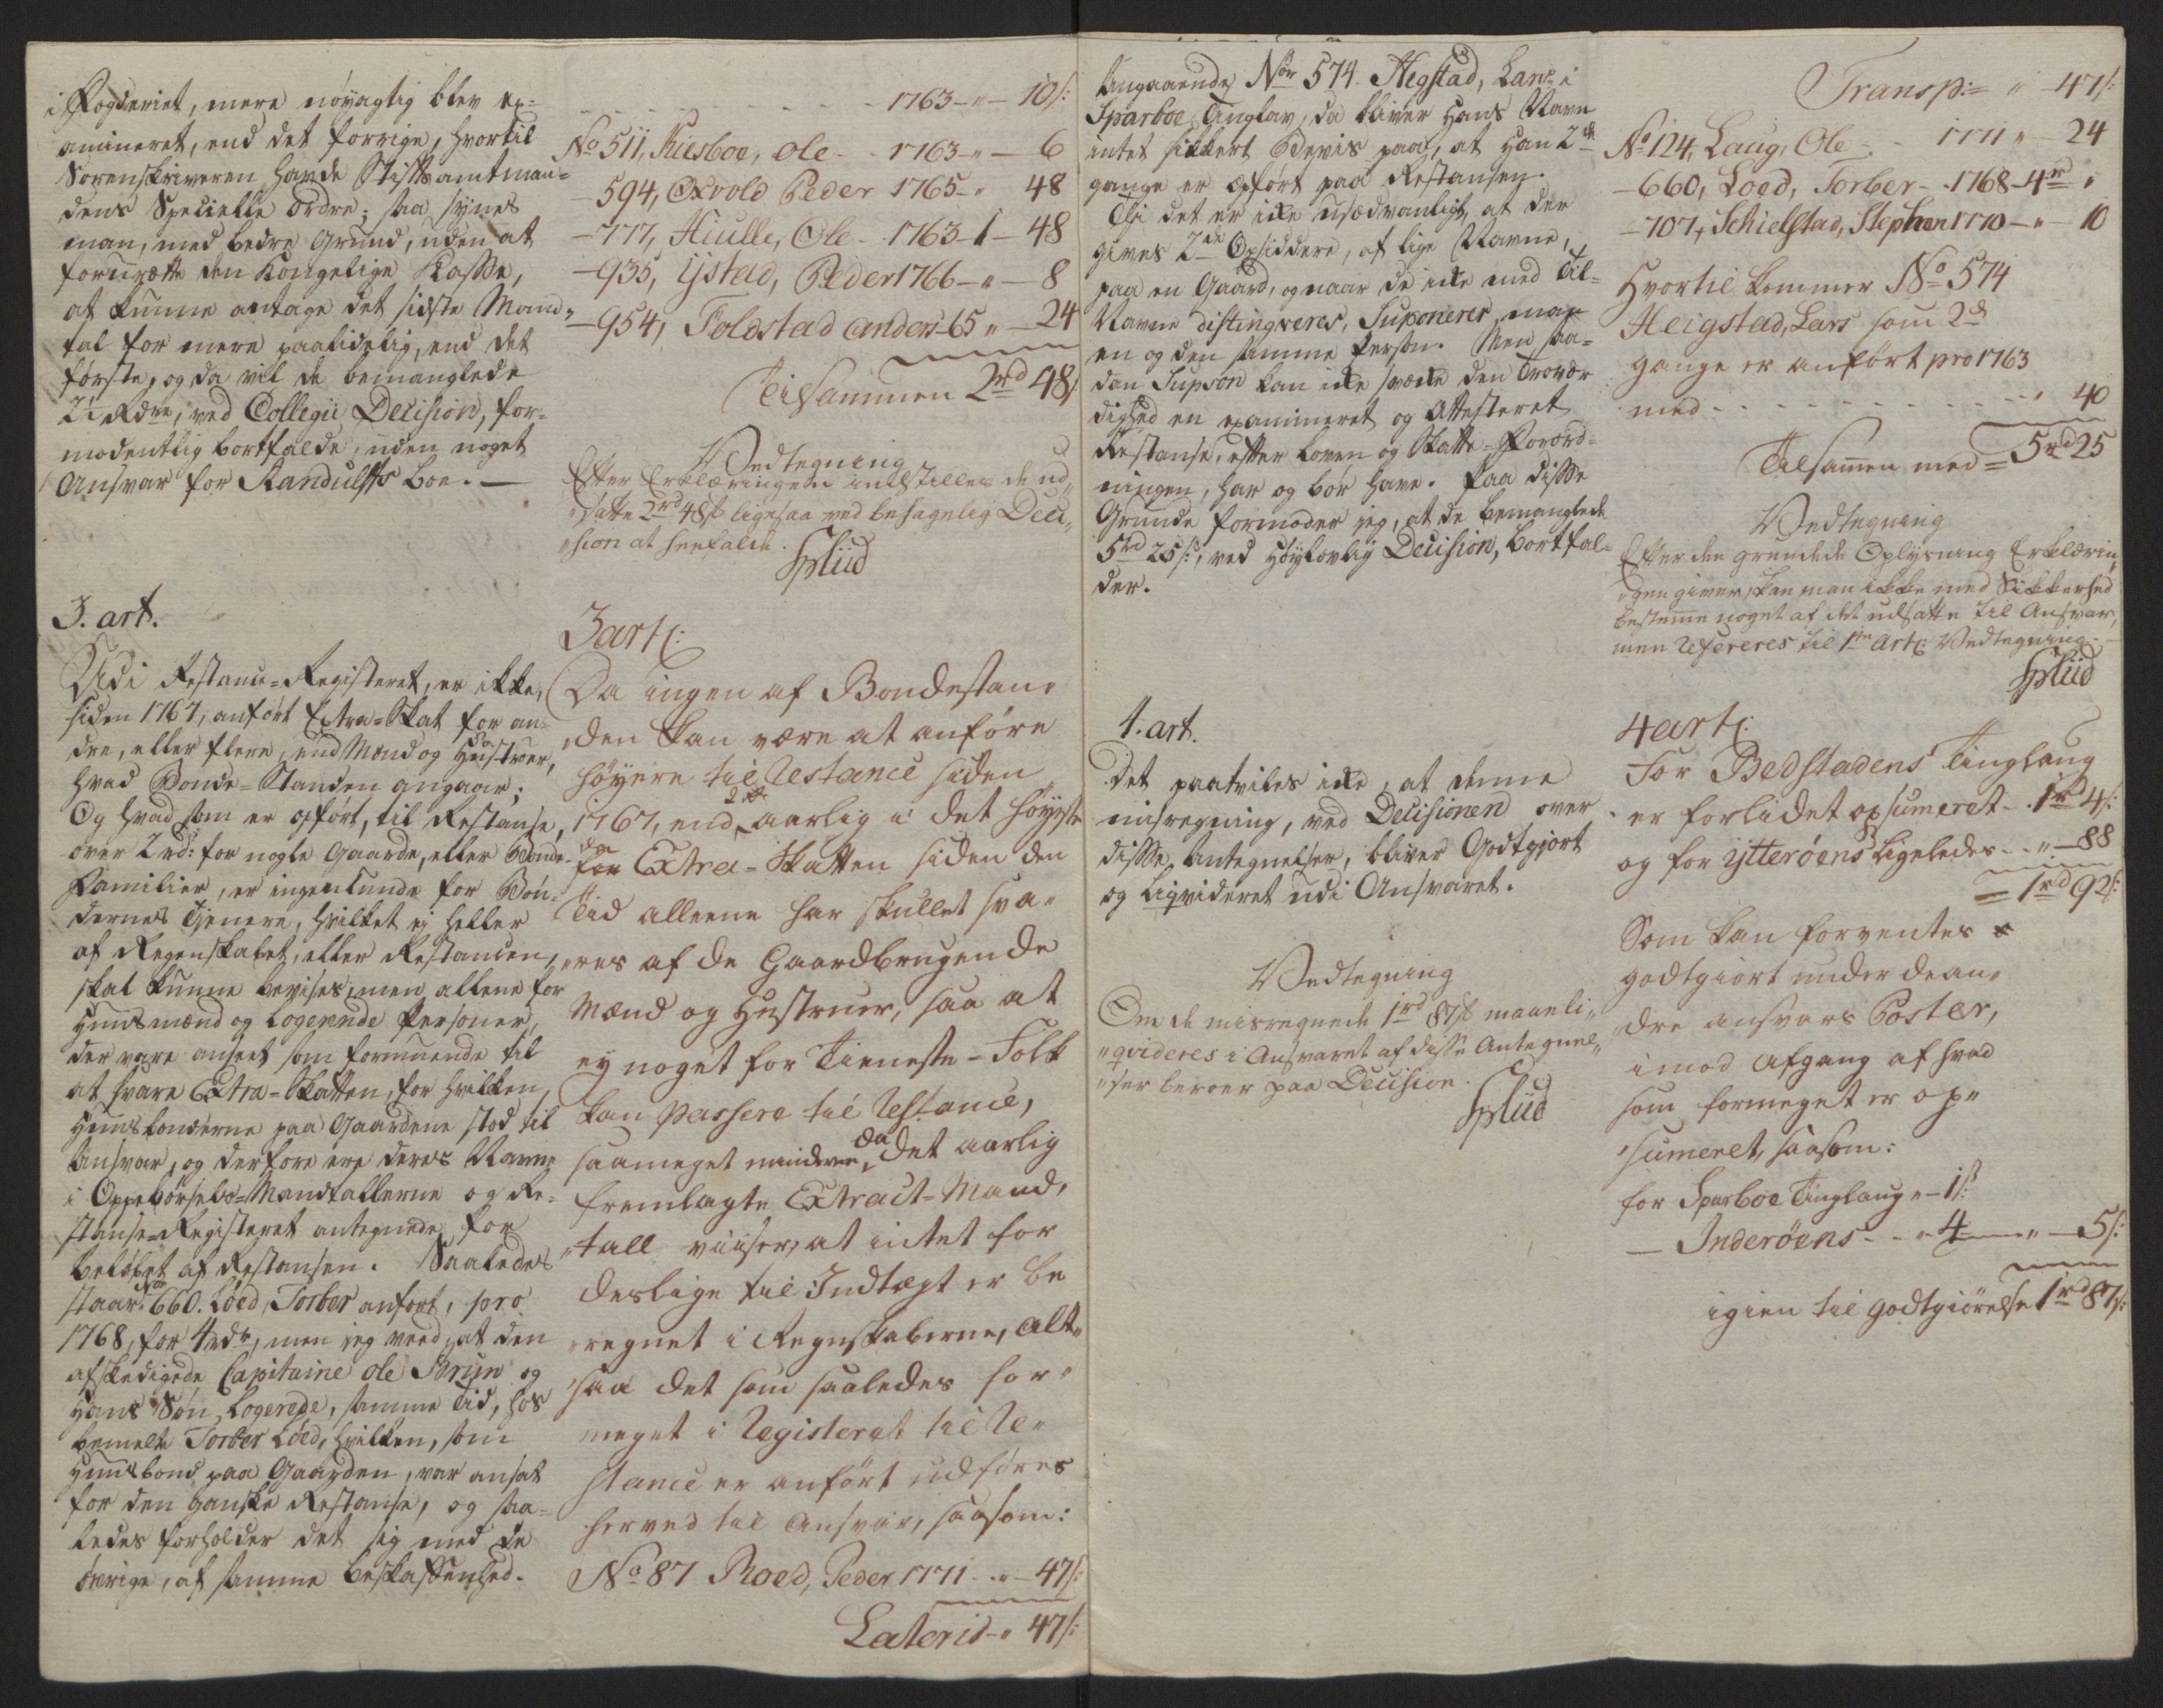 i Fogderiet, mere nöyagtig blev ex-
amineret, end det forrige, hvortil
Sorenskriveren havde Stiftsamtman-
dens Specielle Ordre; saa synes
man, med bedre Grund, uden at
forurætte den Kongelige Kasse,
at kunne antage det sidste Mand-
tal for mere paalidelig, end det
første, og da vil de bemanglede
ved Collegii Decision, for-
modentlig bortfalde, uden noget
Ansvar for Randulffs Boe. —
3. art.
Udi Restance-Registeret, er ikke,
siden 1767, anført Extra-Skat for an-
dre, eller flere, end Mand og Hustruer,
hvad Bonde-Standen angaar;
Og hvad som er opført, til Restanse,
over 2 rd: for nogle Gaarde, eller Bonde-
Familier, er ingenlunde for Bön-
dernes Tienere, hvilket ej heller
af Regenskabet, eller Restancen,
skal kunne bevises, men allene for
Huusmænd og Logerende Personer,
der vare anseet som formuende til
at svare Extra-Skatten, for hvilken
Huusbonderne paa Gaardene stod til
Ansvar, og derfore ere deres Navne
i Oppebørsels-Mandtallerne og Re-
stanse-Registeret antegnede for
beløbet af Restansen. Saaledes
staar 660. Löed, Torber anfört, pro
1768, for 4 rdr, men jeg veed, at den
afskedigede Capitaine Ole Brun og
hans Sön Logerede, samme Tid, hos
bemelte Torber Löed, hvilken, som
Huusbond paa Gaarden, var ansat
for den ganske Restanse, og saa-
ledes forholder det sig med de
övrige, af samme beskaffenhed.
1763 - " - 10 s:
No 511, Kiesboe, Ole - - 1763 - " - 6
- 594, Oxvold Peder 1765 - " 48
- 777, Hiulle, Ole - 1763 - 1 - 48
- 935, Ystad, Peder 1766 - " - 8
- 954, Foldstad Anders 65 " - 24
Tilsammen 2 rd 48 s
Vedtegning
Efter Erklæringen indstilles de ud„
„satte 2 rd 48 s ligesaa ved behagelig Deci„
„sion at henfalde.
Schlüd
3 artl:
Da ingen af Bondestan„
„den kan være at anføre
høyere til Restance siden
1767, end 2 rd aarlig i det høyeste
da Extra-Skatten siden den
Tid alleene har skullet sva„
„res af de Gaardbrugende
Mænd og Hustruer, saa at
ey noget for Tieneste-Folk
kan passere til Restance,
saameget mindre, da det aarlig
fremlagte Extract-Mand„
„tall viiser, at intet for
deslige til Indtægt er be
„regnet i Regnskaberne, alt„
„saa det som saaledes for„
meget i Registeret til Re„
stance er anført udføres
herved til Ansvar, saasom:
No 87 Roed, Peder 1771 - " - 47 s:
Lateris - " 47 s:
Angaaende Nor 574. Hegstad, Lars i
Sparboe Tinglav, da bliver hans Navn
intet sikkert Beviis paa, at han 2de
gange er opfört paa Restansen.
Thi det er icke usædvanligt, at der
gives 2de Opsiddere, af lige Navne,
paa en Gaard, og naar de icke med Til-
Navne distingveres, Suponerer man
en og den samme Person. Men saa-
dan Supson kan icke svække den Troværdighed
en examineret og Attesteret
Restanse, efter Loven og Skatte-Forord-
ningen, har og bör have. Paa disse
Grunde formoder jeg, at de bemanglede
5 rd 25 s:, ved höylovlig Decision, bortfal-
der.
4. art.
Det paatviles icke, at denne
misregning, ved Decisionen over
disse Antegnelser, bliver Godtgjort
og Liqvideret udi Ansvaret.
Vedtegning
Om de misregnede 1 rd 87 s maae li„
„qvideres i Ansvaret af disse Antegnel„
„ser beroer paa Decision.
Schlüd
Transp: = " 47 s:
No 124, Laug, Ole - - 1771 " - 24
- 660, Loed, Torber - 1768 - 4 rd "
- 707, Schielstad, Stephen 1770 - " - 10
Hvortil kommer No 574
Heigstad, Lars som 2de
gange er anført pro 1763
med - - - - - - " 40
Tilsamen med = 5 rd 25
Vedtegning
Efter den grundede Oplysning Erklærin„
„gen giver, kan man ikke med Sikkerhed
bestemme noget af det udsatte til Ansvar,
men Refereres til 1ste Artl: Vedtegning. —
Schlüd
4 artl:
For Bedstadens Tinglaug
er forlidet opsumeret - 1 rd 4 s:
og for Ytterøens ligeledes - - " - 88
= 1 rd 92 s:
Som kan forventes
godtgiort under de an„
„dre ansvars Poster,
imod Afgang af hvad
som formeget er op„
„sumeret, saasom:
for Sparboe Tinglaug " - 1 s:
— Inderøens - - " 4 — " - 5 s:
igien til godtgiørelse 1 rd 87 s: